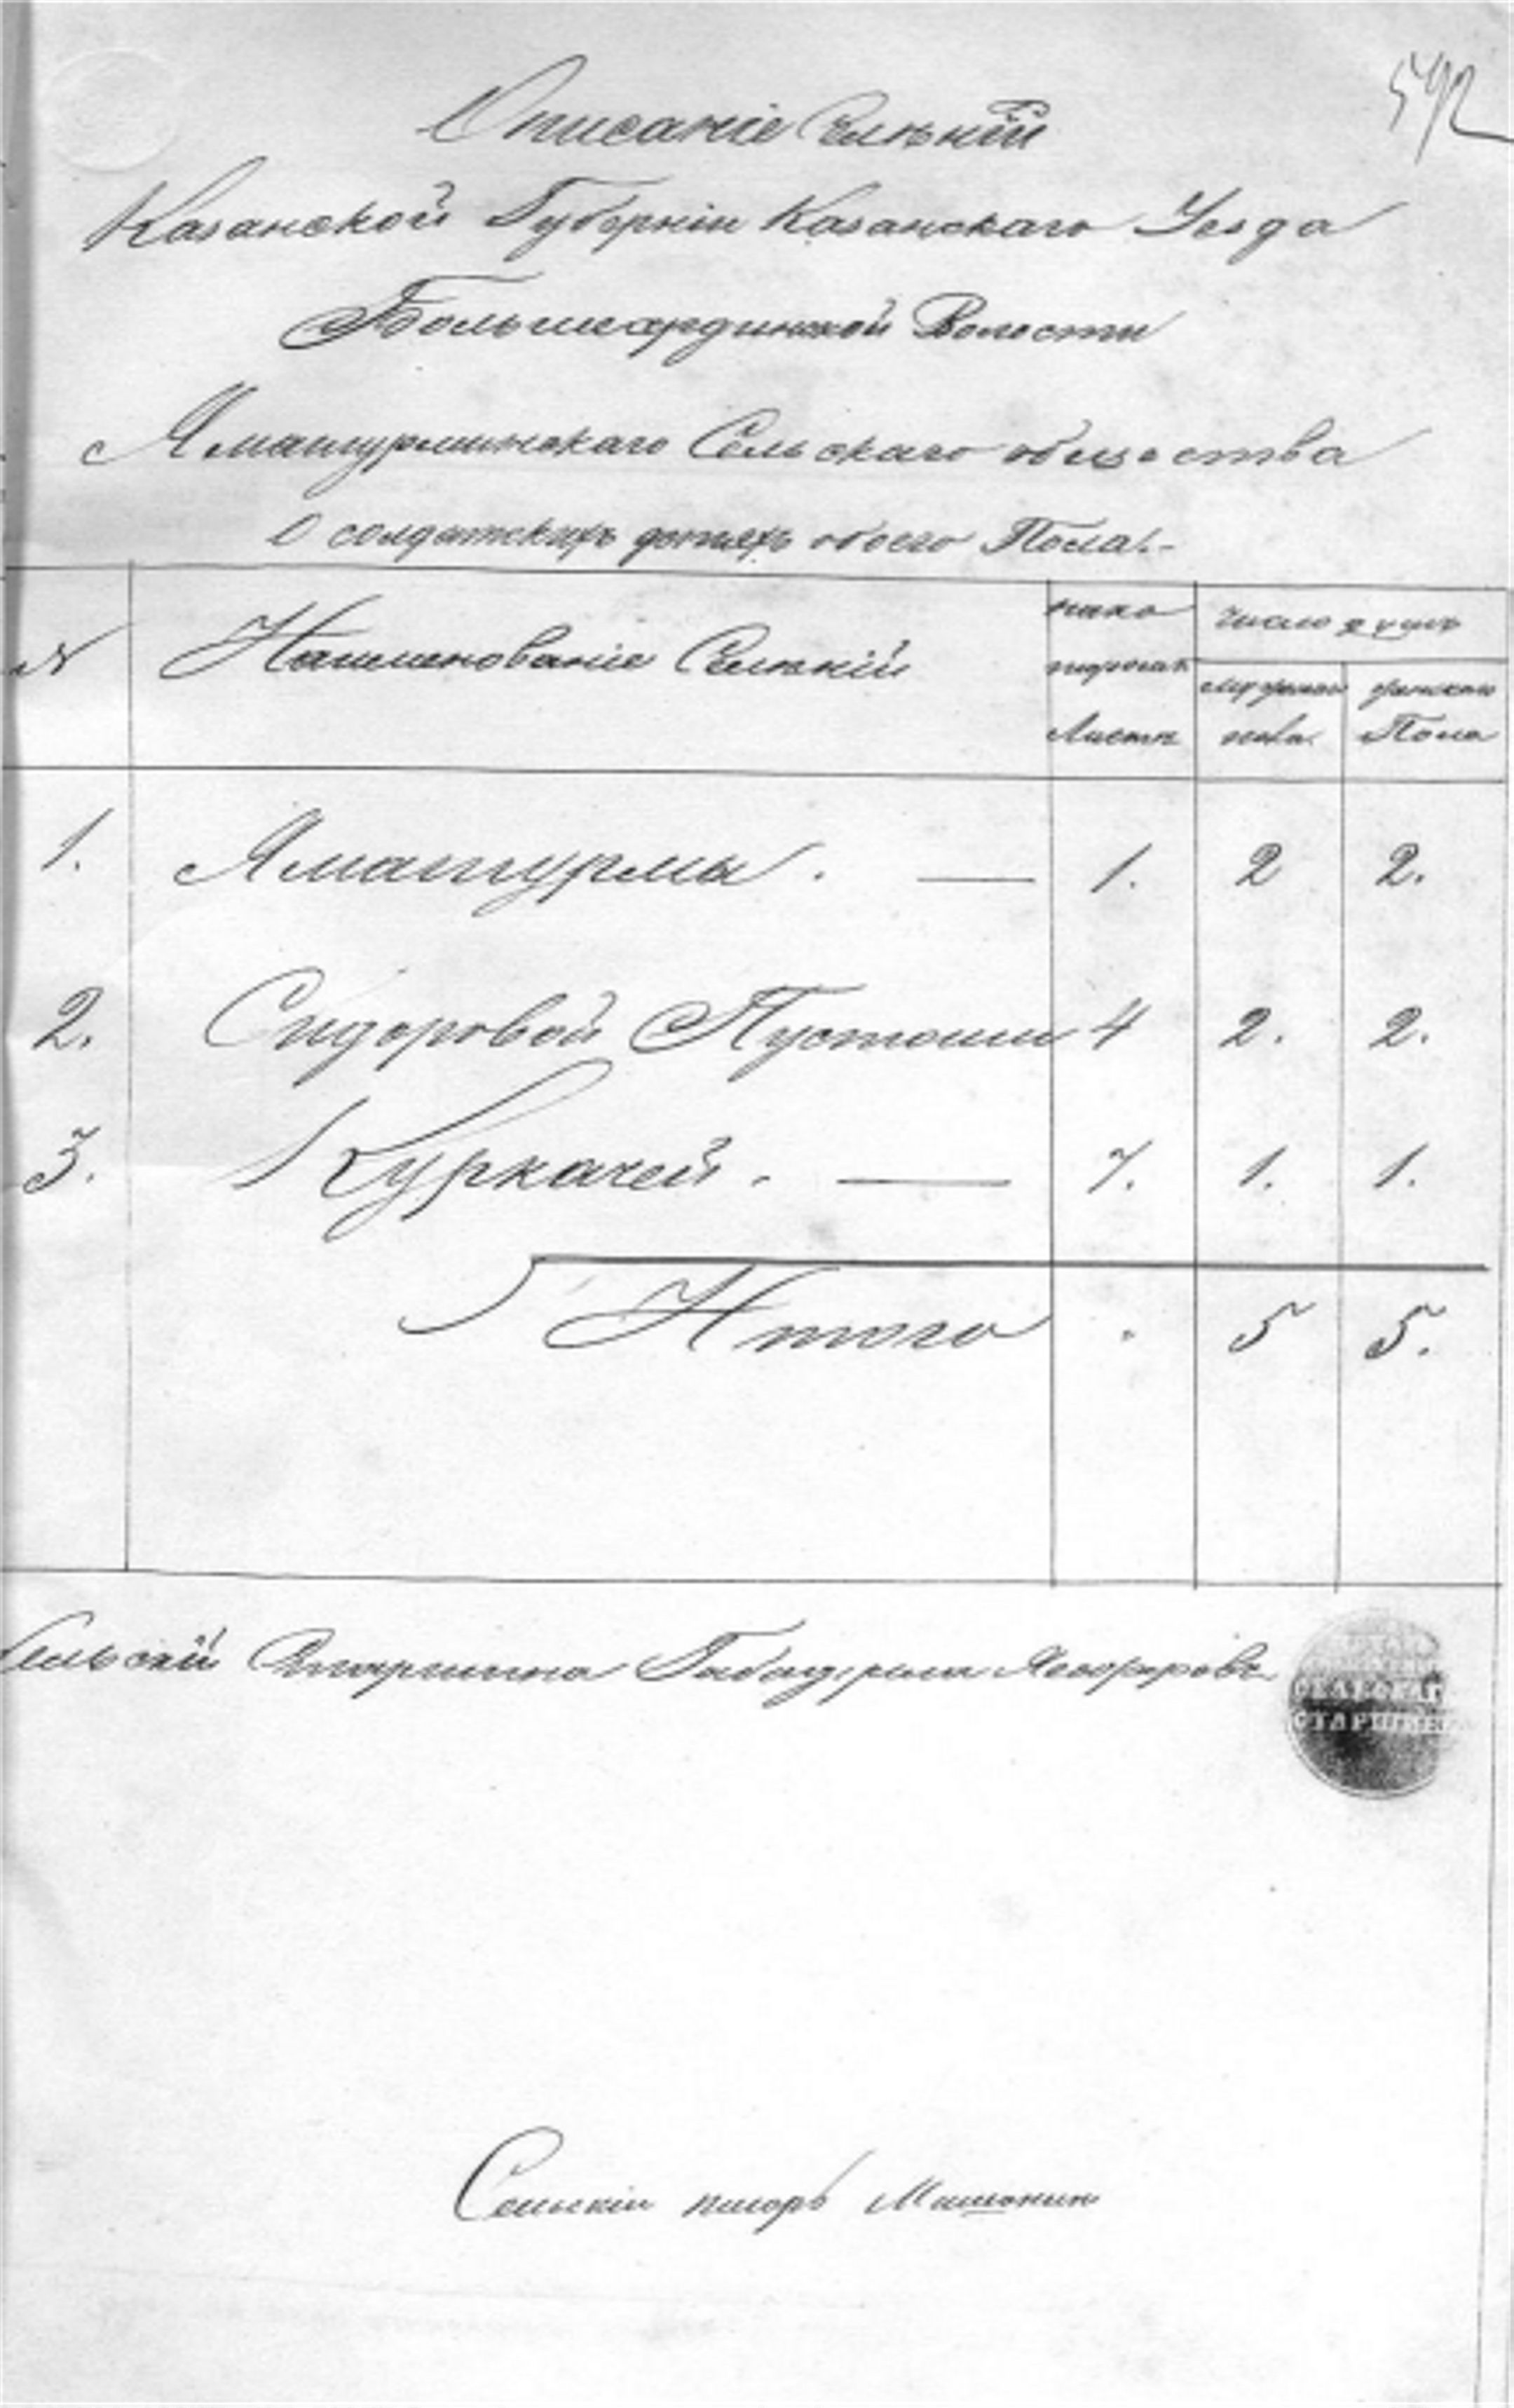 592
Описаніе Селеній
Казанской Губерніи Казанскаго Уезда
Большеардинской Волости
Ямашурминскаго Сельскаго общества
О солдатскихъ детяхъ обоего Пола.
№ Наименованіе Селеній
на ко
торомъ
Листе
Число душъ
мужскаго
пола
женскаго
Пола
1. Ямашурмы. — 1. 2 2.
2. Сидоровой Пустоши 4 2. 2.
3. Куркачей. — 7. 1. 1.
Итого 5 5.
Сельскій Старшина
СЕЛЬСКАГО
СТАРШИНЫ
Сельскій писарь